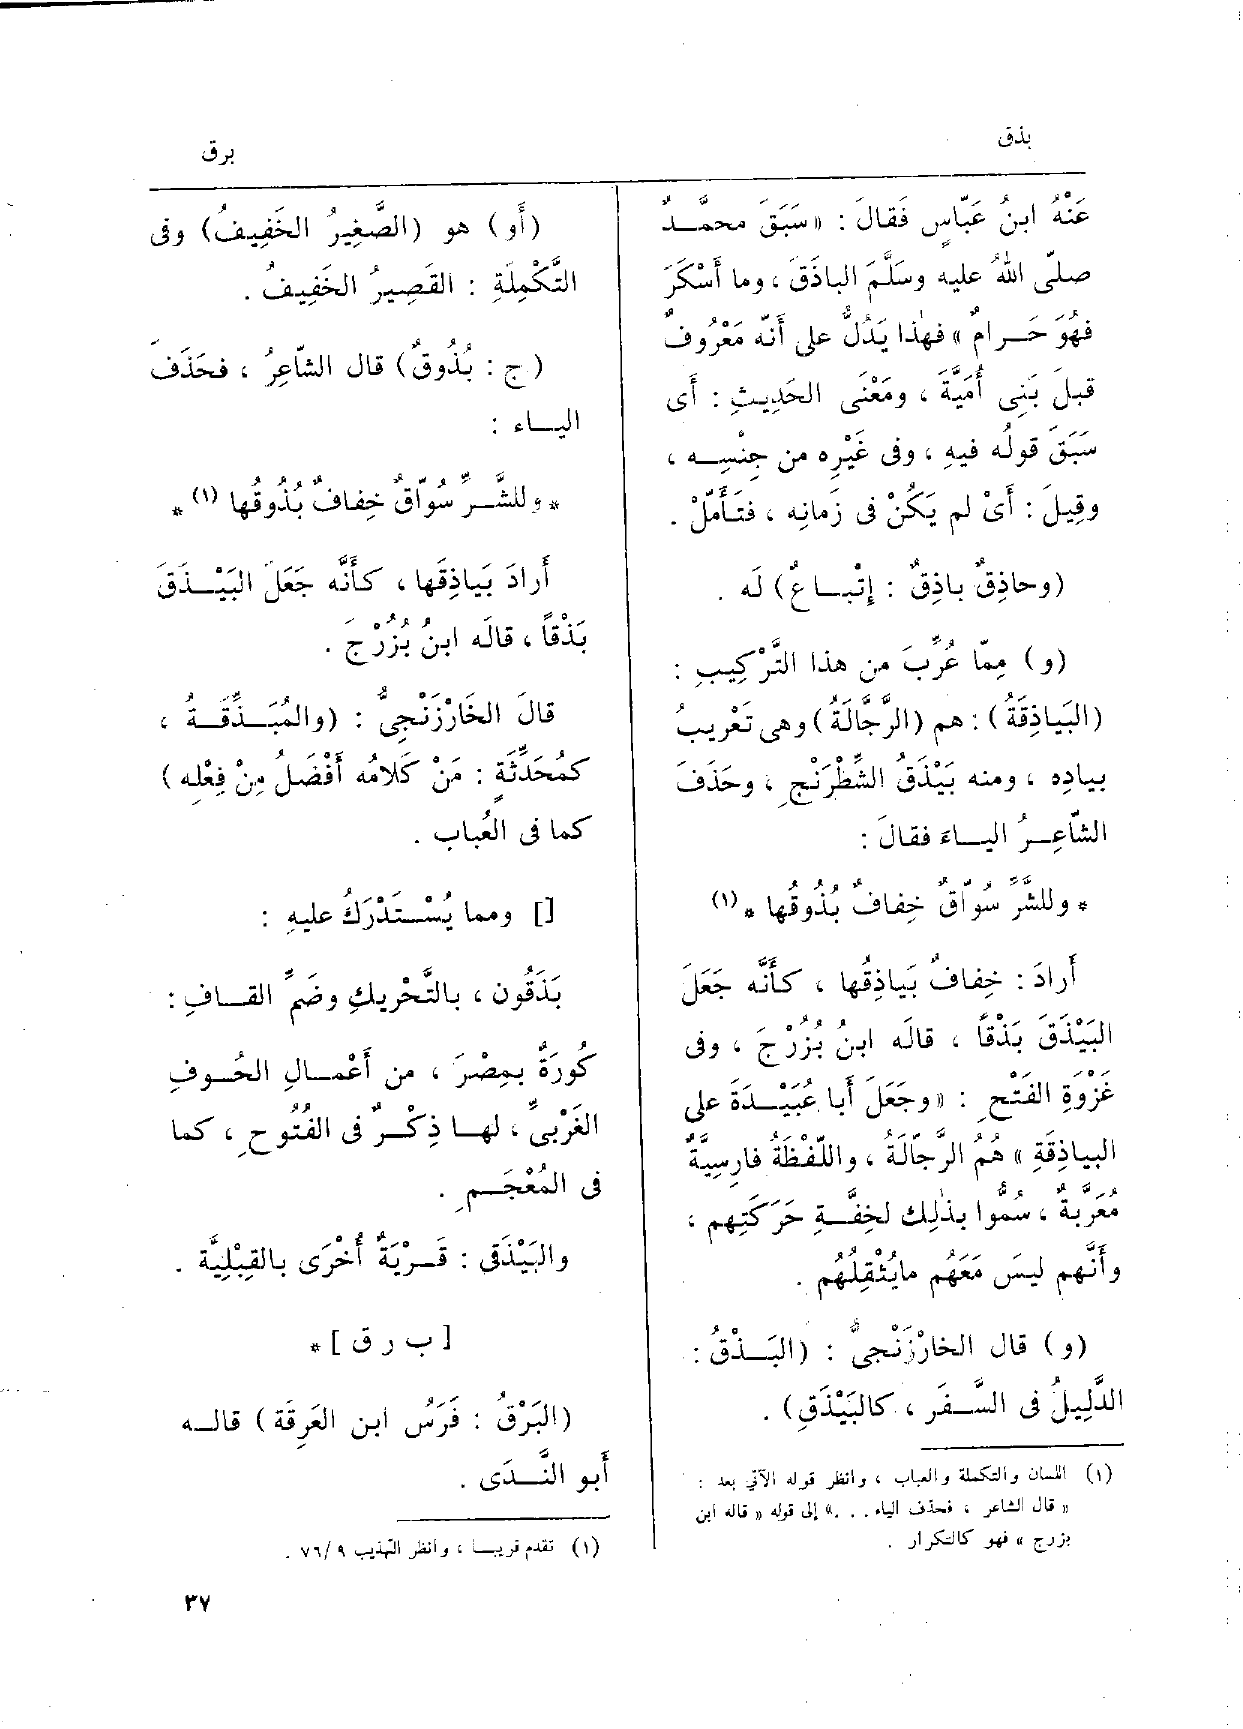 بذق
برق
عَنْهُ ابنُ عَبّاسٍ فَقالَ : « سَبَقَ محمَّـدٌ
صلّى اللهُ عليه وسَلَّمَ الباذَقَ ، وما أَسْكَرَ
فهُوَ حَـرامٌ » فهٰذا يَدُلُّ على أَنّه مَعْرُوفٌ
قبلَ بَنِى أُمَيَّةَ ، ومَعْنَى الحَدِيثِ : أَى
سَبَقَ قولُه فيهِ ، وفى غَيْرِه من جِنْسِـه ،
وقِيلَ : أَىْ لم يَكُنْ فى زَمانِه ، فتَأَمَّلْ .
(وحاذِقٌ باذِقٌ : إِتْبـاعٌ) لَه .
(و) مِمّا عُرِّبَ من هذا التَّرْكِيبِ :
(البَياذِقَةُ) : هم (الرَّجّالَةُ) وهى تَعْرِيبُ
بياده ، ومنه بَيْذَقُ الشِّطْرَنْجِ ، وحَذَفَ
الشّاعِـرُ اليـاءَ فقالَ :
* وللشَّرِّ سُوّاقٌ خِفافٌ بُذُوقُها * (١)
أَرادَ : خِفافٌ بَياذِقُها ، كأَنَّه جَعَلَ
البَيْذَقَ بَذْقاً ، قالَه ابنُ بُزُرْجَ ، وفى
غَزْوَةِ الفَتْحِ : « وجَعَلَ أَبا عُبَيْـدَةَ على
البياذِقَةِ » هُمُ الرَّجّالَةُ ، واللَّفْظَةُ فارِسِيَّةٌ
مُعَرَّبةٌ ، سُمُّوا بذٰلِك لخِفَّـةِ حَرَكَتِهِم ،
وأَنَّهم ليسَ مَعَهُم مايُثْقِلُهُم .
(و) قال الخارْزَنْجىُّ : (البَـذْقُ :
الدَّلِيلُ فى السَّـفَر ، كالبَيْذَقِ) .
(١) اللسان والتكملة والعباب ، وانظر قوله الآتي بعد :
« قال الشاعر ، فحذف الياء . . . » إلى قوله « قاله ابن
بزرج » فهو كالتكرار .
(أَو) هو (الصَّغِيرُ الخَفِيفُ) وفى
التَّكْمِلَةِ : القَصِيرُ الخَفِيفُ .
(ج : بُذُوقٌ) قال الشّاعِرُ ، فحَذَفَ
اليـاء :
* وللشَّـرِّ سُوّاقٌ خِفافٌ بُذُوقُها (١) *
أَرادَ بَياذِقَها ، كأَنَّه جَعَلَ البَيْـذَقَ
بَذْقاً ، قالَه ابنُ بُزُرْجَ .
قالَ الخارْزَنْجِىُّ : (والمُبَـذِّقَـةُ ،
كمُحَدِّثَةٍ : مَنْ كَلامُه أَفْضَلُ مِنْ فِعْلِه )
كما فى العُباب .
[] ومما يُسْـتَدْرَكُ عليهِ :
بَذَقُون ، بالتَّحْرِيكِ وضَمِّ القـافِ :
كُورَةٌ بمِصْرَ ، من أَعْمـالِ الحُـوفِ
الغَرْبىِّ ، لهـا ذِكْـرٌ فى الفُتُوحِ ، كما
فى المُعْجَـمِ .
والبَيْذَقى : قَـرْيَةٌ أُخْرَى بالقِبْلِيَّة .
[ ب ر ق ] *
(البَرْقُ : فَرَسُ ابنِ العَرِقَة) قالـه
أَبو النَّـدَى .
(١) تقدم قريبـا ، وانظر التهذيب ٩ /٧٦ .
٣٧